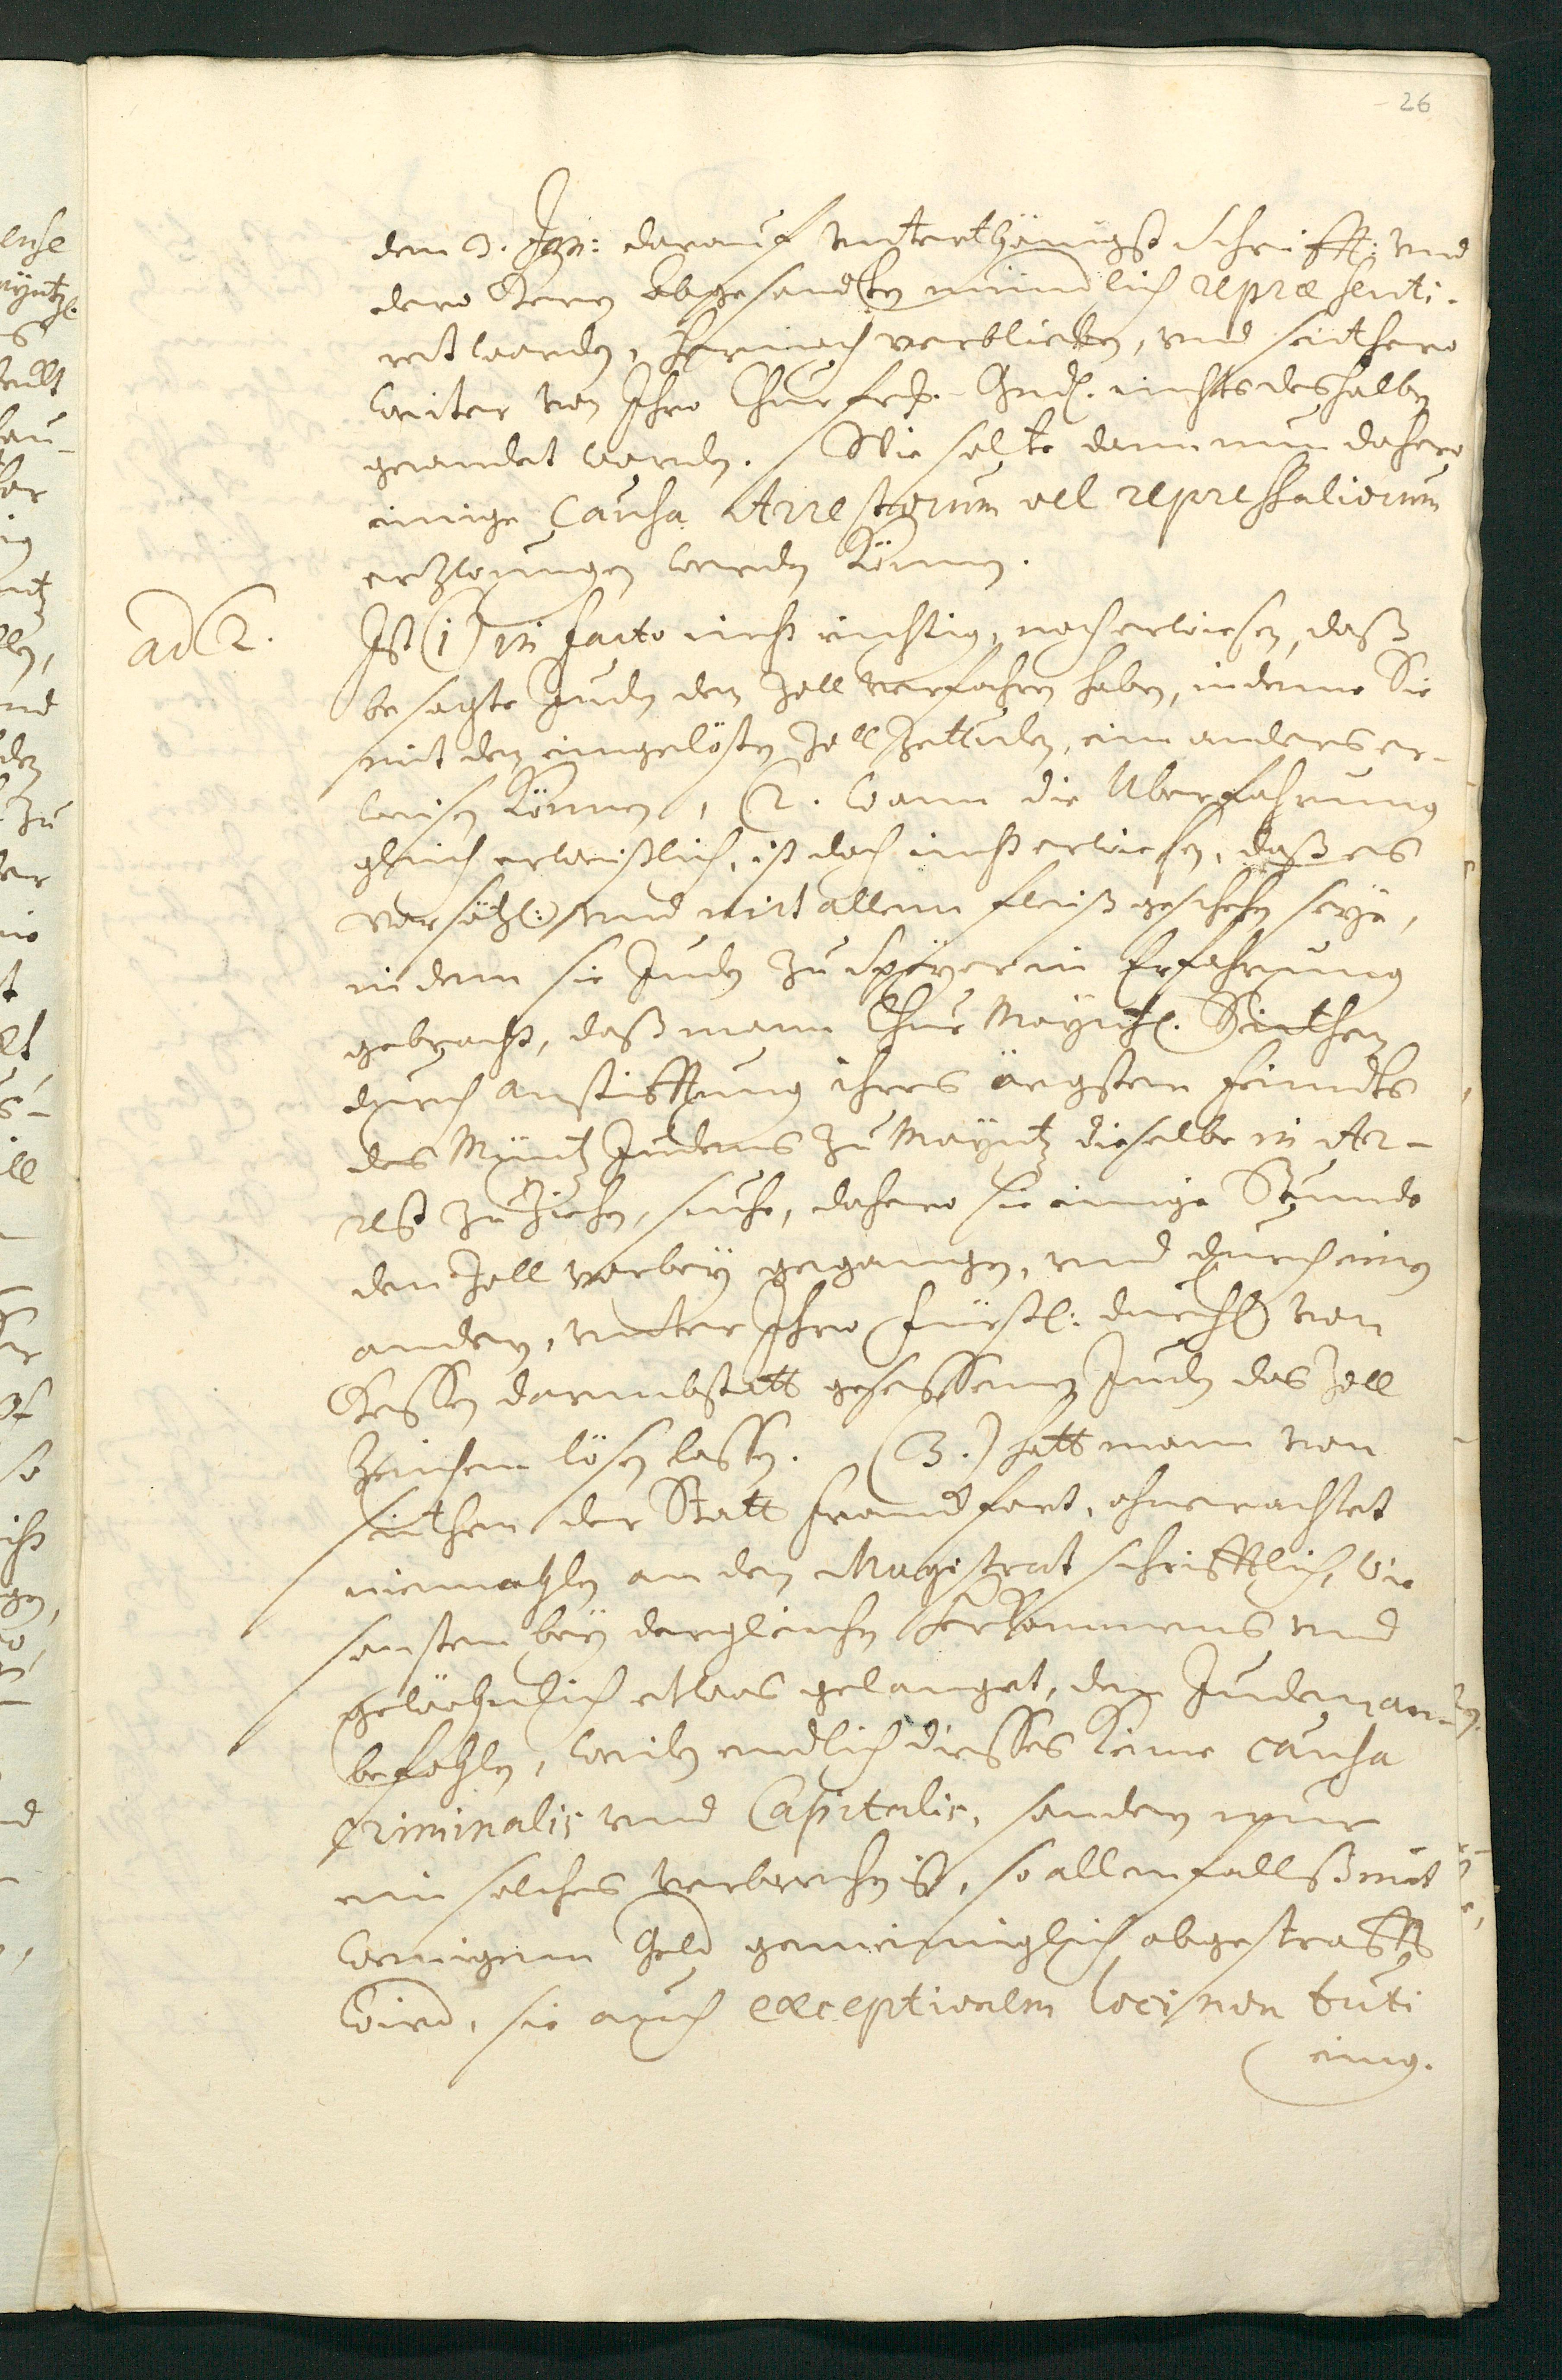 26
den 3. Jan: darauf unterthänigst schrifft: und
dero Herrn Abgesandten mündlich repræsenti-
ret worden, hernach verblieben, und seithero
weiter von Ihro Churfrl. Gnd. nichts deshalben
geandet worden. Wie solte dann nun dahero
einige Causa Arrestorum vel repressaliorum
erzwungen werden können.
ad 2.
Ist (1) in facto nicht richtig, noch erwiesen, daß
besagte Juden den Zoll verfahren haben, indeme Sie
mit den eingelösten Zoll Zettulen, ein anders er-
weisen können, (2. wann die Uberfahrung
gleich erweißlich, ist doch nicht erwiesen, daß es
vorsätzl: und mit allem fleiß geschehen seye,
in dem sie Juden zu Speyer in Erfahrung
gebracht, daß mann Chur Mayntzl. Seithen
durch anstifftung ihres ärgsten feindts
des Müntz Judens zu Mayntz dieselbe in Ar-
rest zu ziehen, suche, dahero sie einige Stunde
den Zoll vorbey gegangen, und durch einen
andern, unter Ihro Fürstl: durchl von
Hessen darmbstatt gesessenen Juden das Zoll
Zeichen lösen lassen. (3.) hatt mann von
seithen der Statt Franckfort, ohnerachtet
niemahlen an den Magistrat schrifftlich, wie
sonsten bey dergleichen Herkommens und
gewöhnlich etwas gelanget, den Juden an-
befohlen, weilen endlich diesses keine causa
criminalis und Capitalis, sondern nur
ein solches verbrechen ist, so allenfallß mit
wenigem Geld gemeiniglich abgestrafft
wird, sie auch exceptionem loci non tuti
einig.